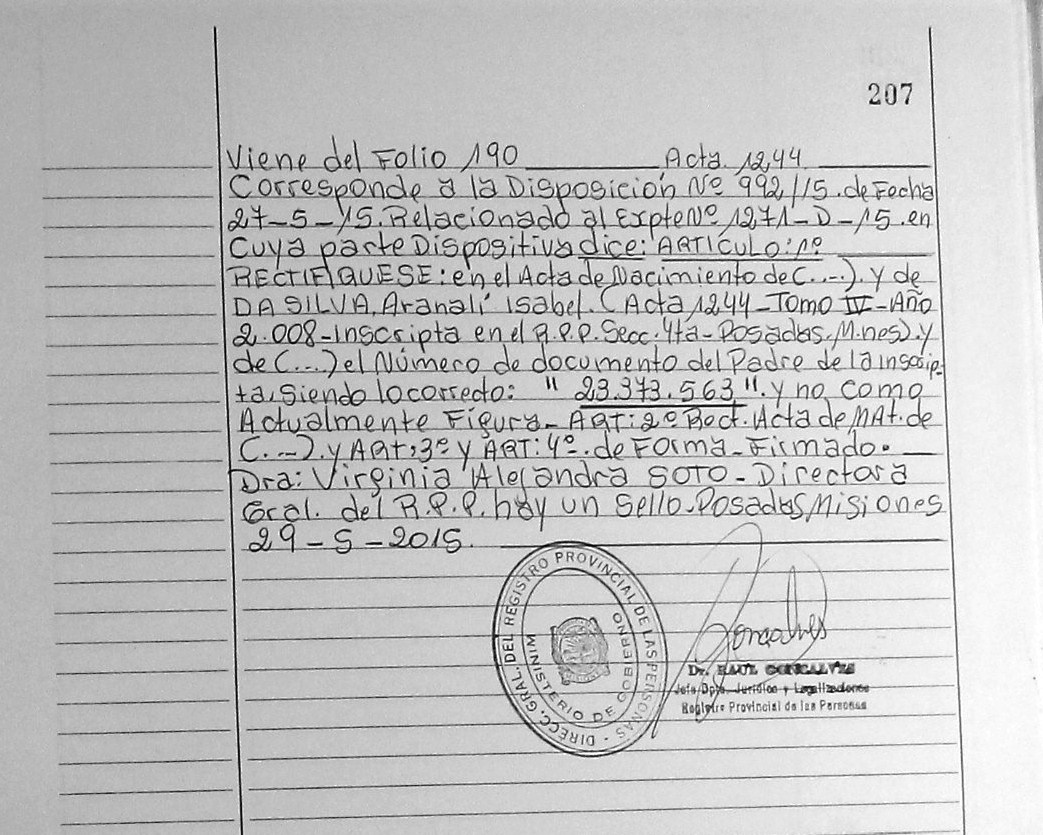 207
Viene del Folio 190 Acta 1244
Corresponde a la Disposición Nº 992/15. de Fecha
27-5-15. Relacionado al Expte Nº 1271-D-15. en
Cuya parte Dispositiva dice: ARTICULO: 1º
RECTIFIQUESE: en el Acta de Nacimiento de (...). Y de
DA SILVA, Aranalí Isabel. (Acta 1244-Tomo IV-Año
2.008-Inscripta en el R.P.P. Secc. 4ta-Posadas. M.nes). y
de (...) el Número de documento del Padre de la inscrip-
ta, Siendo lo correcto: "23.373.563". y no como
Actualmente Figura- ART: 2º Rect. Acta de MAt. de
(...). y ART: 3º y ART: 4º. de Forma-Firmado.
Dra: Virginia Alejandra SOTO-Directora
Gral. del R.P.P. hay un Sello-Posadas, Misiones
29-5-2015.
DIRECC. GRAL. DEL REGISTRO PROVINCIAL DE LAS PERSONAS
MINISTERIO DE GOBIERNO
Goncalves
Dr. RAUL GONCALVES
Jefe Dpto. Jurídico y Legalizaciones
Registro Provincial de las Personas